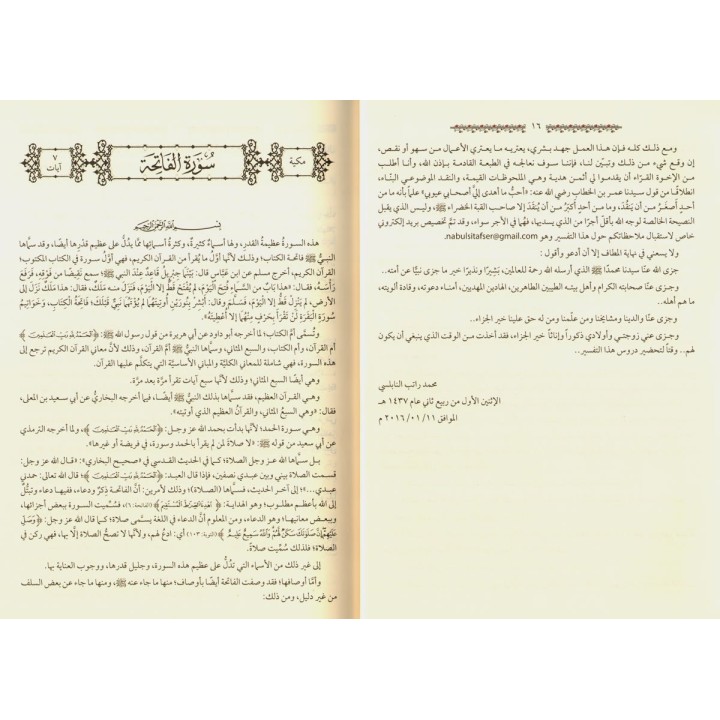 ١٦
ومع ذلك كله فإن هذا العمل جهد بشري، يعتريه ما يعتري الأعمال من سهو أو نقص،
إن وقع شيء من ذلك وتبيّن لنا، فإننا سوف نعالجه في الطبعة القادمة بإذن الله، وأنا أطلب
من الإخوة القراء أن يقدموا لي أثمن هدية وهي الملحوظات القيمة، والنقد الموضوعي البناء،
انطلاقًا من قول سيدنا عمر بن الخطاب رضي الله عنه: «أحبُّ ما أهدى إليَّ أصحابي عيوبي» علماً بأنه ما من
أحدٍ أصغرُ من أن يَنقُدَ، وما من أحدٍ أكبرُ من أن يُنقَدَ إلا صاحب القبة الخضراء ﷺ، وليس الذي يقبل
النصيحة الخالصة لوجه الله بأقلَّ أجرًا من الذي يسديها، فهُما في الأجر سواء، وقد تمَّ تخصيص بريد إلكتروني
خاص لاستقبال ملاحظاتكم حول هذا التفسير وهو nabulsitafser@gmail.com
ولا يسعني في نهاية المطاف إلا أن أدعو وأقول:
جزى الله عنَّا سيدنا محمدًا ﷺ الذي أرسله الله رحمة للعالمين، بَشيرًا ونذيرًا خير ما جزى نبيًّا عن أمته..
وجزى عنَّا صحابته الكرام وأهل بيته الطيبين الطاهرين، الهادين المهديين، أمناء دعوته، وقادة ألويته،
ما هم أهله..
وجزى عنَّا والدينا ومشايخنا ومن علَّمنا ومن له حق علينا خير الجزاء..
وجزى عني زوجتي وأولادي ذكوراً وإناثاً خير الجزاء، فقد أخذت من الوقت الذي ينبغي أن يكون
لهم.. وقتاً لتحضير دروس هذا التفسير..
محمد راتب النابلسي
الإثنين الأول من ربيع ثاني عام ١٤٣٧ هـ
الموافق ٢٠١٦/٠١/١١ م
مكية
سُورَةُ الفَاتِحَة
٧ آيات
بِسْمِ اللَّهِ الرَّحْمَنِ الرَّحِيمِ
هذه السورةُ عظيمةُ القدرِ، ولها أسماءٌ كثيرةٌ، وكثرةُ أسمائِها ممَّا يدُلُّ على عظيم قدرِها أيضًا، وقد سمَّاها
النبيُّ ﷺ فاتحة الكتاب؛ وذلك لأنَّها أوَّلُ ما يُقرأ من القرآن الكريم، فهي أوَّلُ سورة في الكتاب المكتوب؛
القرآن الكريم، أخرج مسلم عن ابن عبَّاس قال: بينما جبريلُ قاعدٌ عند النبي ﷺ؛ سمع نقيضًا من فوقه، فرَفَعَ
رَأْسَهُ، فقال: «هذا بَابٌ مِنَ السَّمَاءِ فُتِحَ الْيَوْمَ، لَمْ يُفْتَحْ قَطُّ إلا الْيَوْمَ، فَنَزَلَ منه مَلَكٌ، فقال: هذا مَلَكٌ نَزَلَ إلى
الأرضِ، لم يَنْزِلْ قَطُّ إلا الْيَوْمَ، فَسَلَّمَ وقال: أَبْشِرْ بِنُورَيْنِ أُوتِيتَهُمَا لم يُؤْتَهُمَا نَبِيٌّ قَبْلَكَ؛ فَاتِحَةُ الْكِتَابِ، وَخَوَاتِيمُ
سُورَةِ الْبَقَرَةِ لَنْ تَقْرَأَ بِحَرْفٍ مِنْهُمَا إلا أُعْطِيتَهُ».
وتُسمَّى أمَّ الكتاب؛ لما أخرجه أبو داود عن أبي هريرة من قول رسول الله ﷺ: ﴿الْحَمْدُ لِلَّهِ رَبِّ الْعَالَمِينَ﴾
أم القرآن، وأم الكتاب، والسبع المثاني، وسمَّاها النبي ﷺ أمَّ القرآن، وذلك لأنَّ معاني القرآن الكريم ترجع إلى
هذه السورة، فهي شاملة للمعاني الكليَّة والمباني الأساسيَّة التي يتكلَّم عليها القرآن.
وهي أيضًا السبعُ المثاني؛ وذلك لأنَّها سبع آيات تقرأ مرَّة بعد مرَّة.
وهي القرآن العظيم، فقد سمَّاها بذلك النبي ﷺ أيضًا، فيما أخرجه البخاريُّ عن أبي سعيد بن المعلى،
فقال: «هي السبعُ المثاني، والقرآنُ العظيم الذي أوتيته».
وهي سورة الحمد؛ لأنَّها بدأت بحمد الله عزَّ وجل: ﴿الْحَمْدُ لِلَّهِ رَبِّ الْعَالَمِينَ﴾، ولما أخرجه الترمذي
عن أبي سعيد من قوله ﷺ: «لا صلاةَ لمن لم يقرأ بالحمد وسورة، في فريضة أو غيرها».
بل سمَّاها الله عز وجل الصلاة؛ كما في الحديث القدسي في «صحيح البخاري»: «قال الله عز وجل:
قسمت الصلاة بيني وبين عبدي نصفين، فإذا قال العبد: ﴿الْحَمْدُ لِلَّهِ رَبِّ الْعَالَمِينَ﴾؛ قال الله تعالى: حمدني
عبدي...»؛ إلى آخر الحديث، فسمَّاها (الصلاة)؛ وذلك لأمرين: أنَّ الفاتحة ذِكرٌ ودعاء، ففيها دعاء وتبتُّلٌ
إلى الله بأعظم مطلوب؛ وهو الهداية: ﴿اهْدِنَا الصِّرَاطَ الْمُسْتَقِيمَ﴾ [الفاتحة: ٦]؛ فسُمِّيت السورة ببعض أجزائها،
وببعض معانيها؛ وهو الدعاء، ومن المعلوم أنَّ الدعاء في اللغة يسمَّى صلاة؛ كما قال الله عز وجل: ﴿وَصَلِّ
عَلَيْهِمْ إِنَّ صَلَوَاتَكَ سَكَنٌ لَهُمْ وَاللَّهُ سَمِيعٌ عَلِيمٌ﴾ [التوبة: ١٠٣] أي: ادعُ لهم، ولأنَّها لا تصحُّ الصلاة إلَّا بها، فهي ركن في
الصلاة؛ فلذلك سُمِّيت صلاةً.
إلى غير ذلك من الأسماء التي تدُلُّ على عظيم هذه السورة، وجليل قدرها، ووجوب العناية بها.
وأمَّا أوصافها؛ فقد وصفت الفاتحة أيضًا بأوصاف؛ منها ما جاء عنه ﷺ، ومنها ما جاء عن بعض السلف
من غير دليل، ومن ذلك: